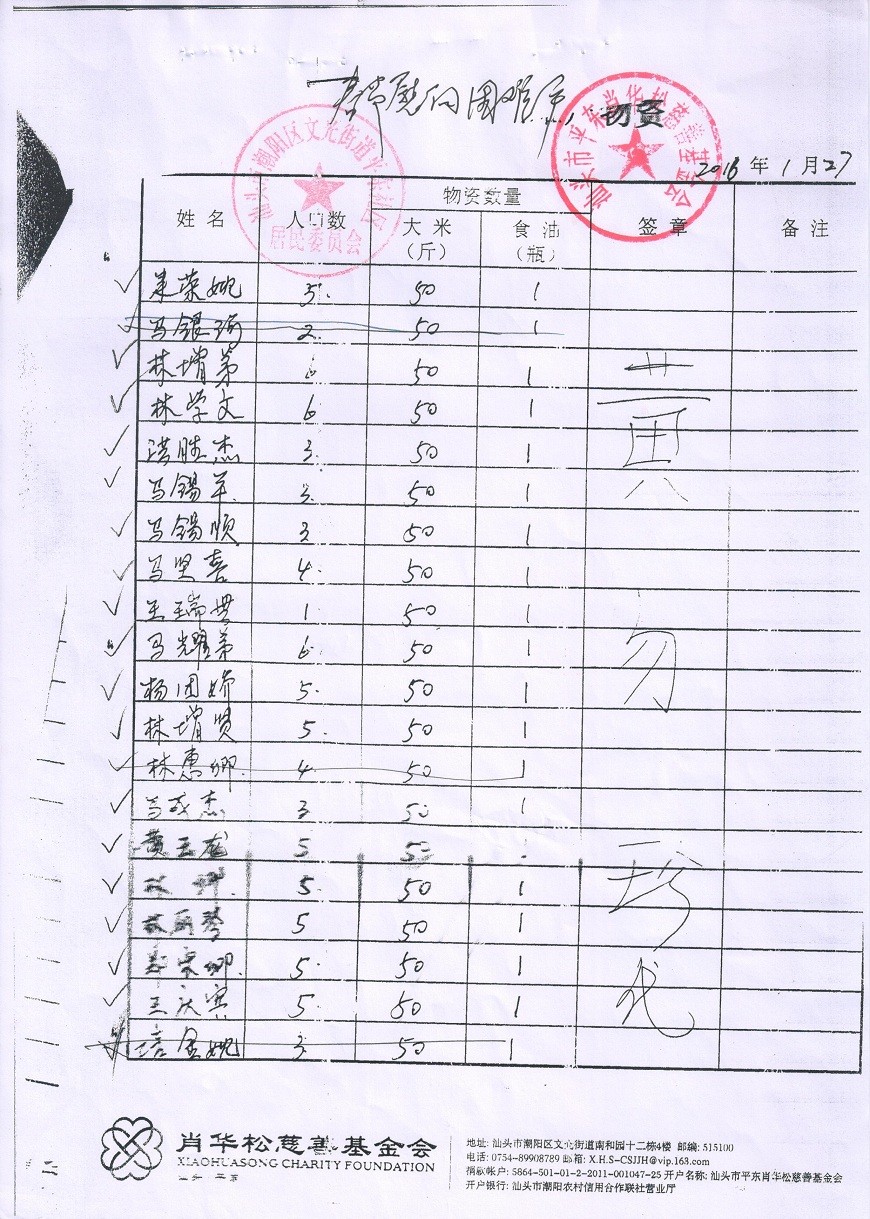 慰问困难户 物资
2016年1月27
汕头市潮阳区文光街道
居民委员会
汕头市平东肖华松慈善基金会
姓名 人口数 物资数量 签章 备注
大米(斤) 食油(瓶)
5 50 1
马银 2 50 1
林增弟 6 50 1
林学文 6 50 1
洪胜杰 3 50 1
马锡羊 3 50 1
马锡顺 3 50 1
马贤喜 4 50 1
王瑞 1 50 1
马耀弟 6 50 1
杨团娇 5 50 1
林增贤 5 50 1
林惠卿 4 50 1
马成杰 3 50 1
黄玉龙 5 50
林 5 50 1
林丽琴 5 50 1
卿 5 50 1
王庆 5 50 1
金婉 3 50 1
黄
珍
代
肖华松慈善基金会
XIAOHUASONG CHARITY FOUNDATION
地址: 汕头市潮阳区文光街道南和园十二栋4楼 邮编: 515100
电话: 0754-89908789 邮箱: X.H.S-CSJJH@vip.163.com
捐款帐户: 5864-501-01-2-2011-001047-25 开户名称: 汕头市平东肖华松慈善基金会
开户银行: 汕头市潮阳农村信用合作联社营业厅